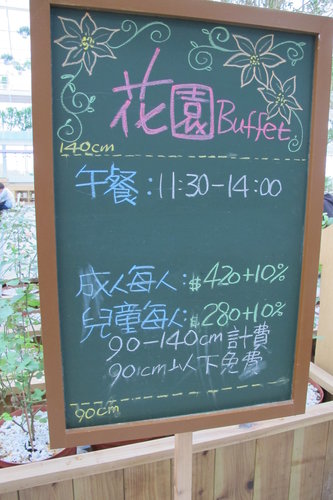 花園Buffet
140cm
午餐：11:30-14:00
成人每人：$420+10%
兒童每人：$280+10%
90-140cm計費
90cm以下免費
90cm